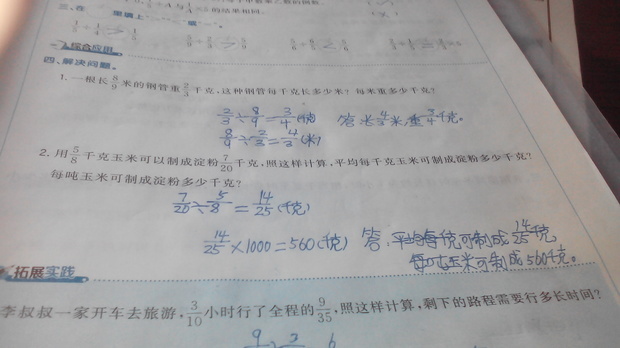 三、在
里填上
的结果相同。
综合应用
四、解决问题。
1. 一根长8/9米的钢管重2/3千克,这种钢管每千克长多少米?每米重多少千克?
2/3÷8/9=3/4(千克) 答:长4/3米,重3/4千克。
8/9÷2/3=4/3(米)
2. 用5/8千克玉米可以制成淀粉7/20千克,照这样计算,平均每千克玉米可制成淀粉多少千克?
每吨玉米可制成淀粉多少千克?
7/20÷5/8=14/25(千克)
14/25×1000=560(千克) 答:平均每千克可制成14/25千克,
每吨玉米可制成560千克。
拓展实践
李叔叔一家开车去旅游,3/10小时行了全程的9/35,照这样计算,剩下的路程需要行多长时间?